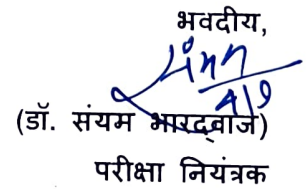 भवदीय,
4/9
(डॉ. संयम भारद्वाज)
परीक्षा नियंत्रक